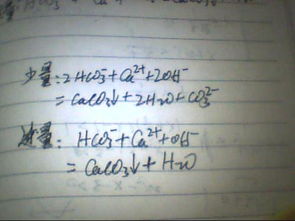 少量:2HCO₃⁻+Ca²⁺+2OH⁻
=CaCO₃↓+2H₂O+CO₃²⁻
过量:HCO₃⁻+Ca²⁺+OH⁻
=CaCO₃↓+H₂O